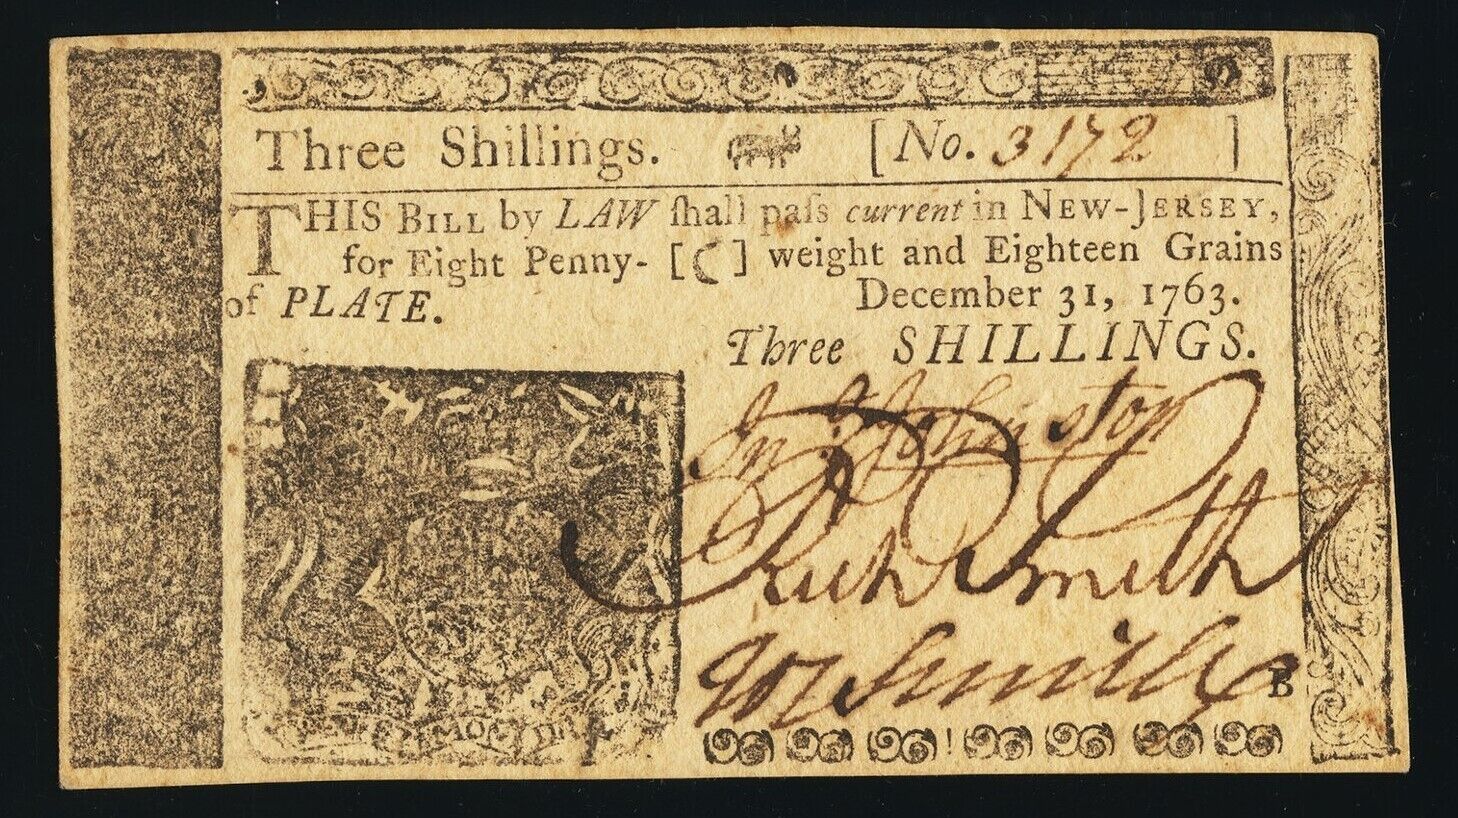 Three Shillings. [No. 3172 ]
THIS BILL by LAW ſhall paſs current in NEW-JERSEY,
for Eight Penny- [ ( ] weight and Eighteen Grains
of PLATE. December 31, 1763.
Three SHILLINGS.
Jn Johnston
Rich Smith
B